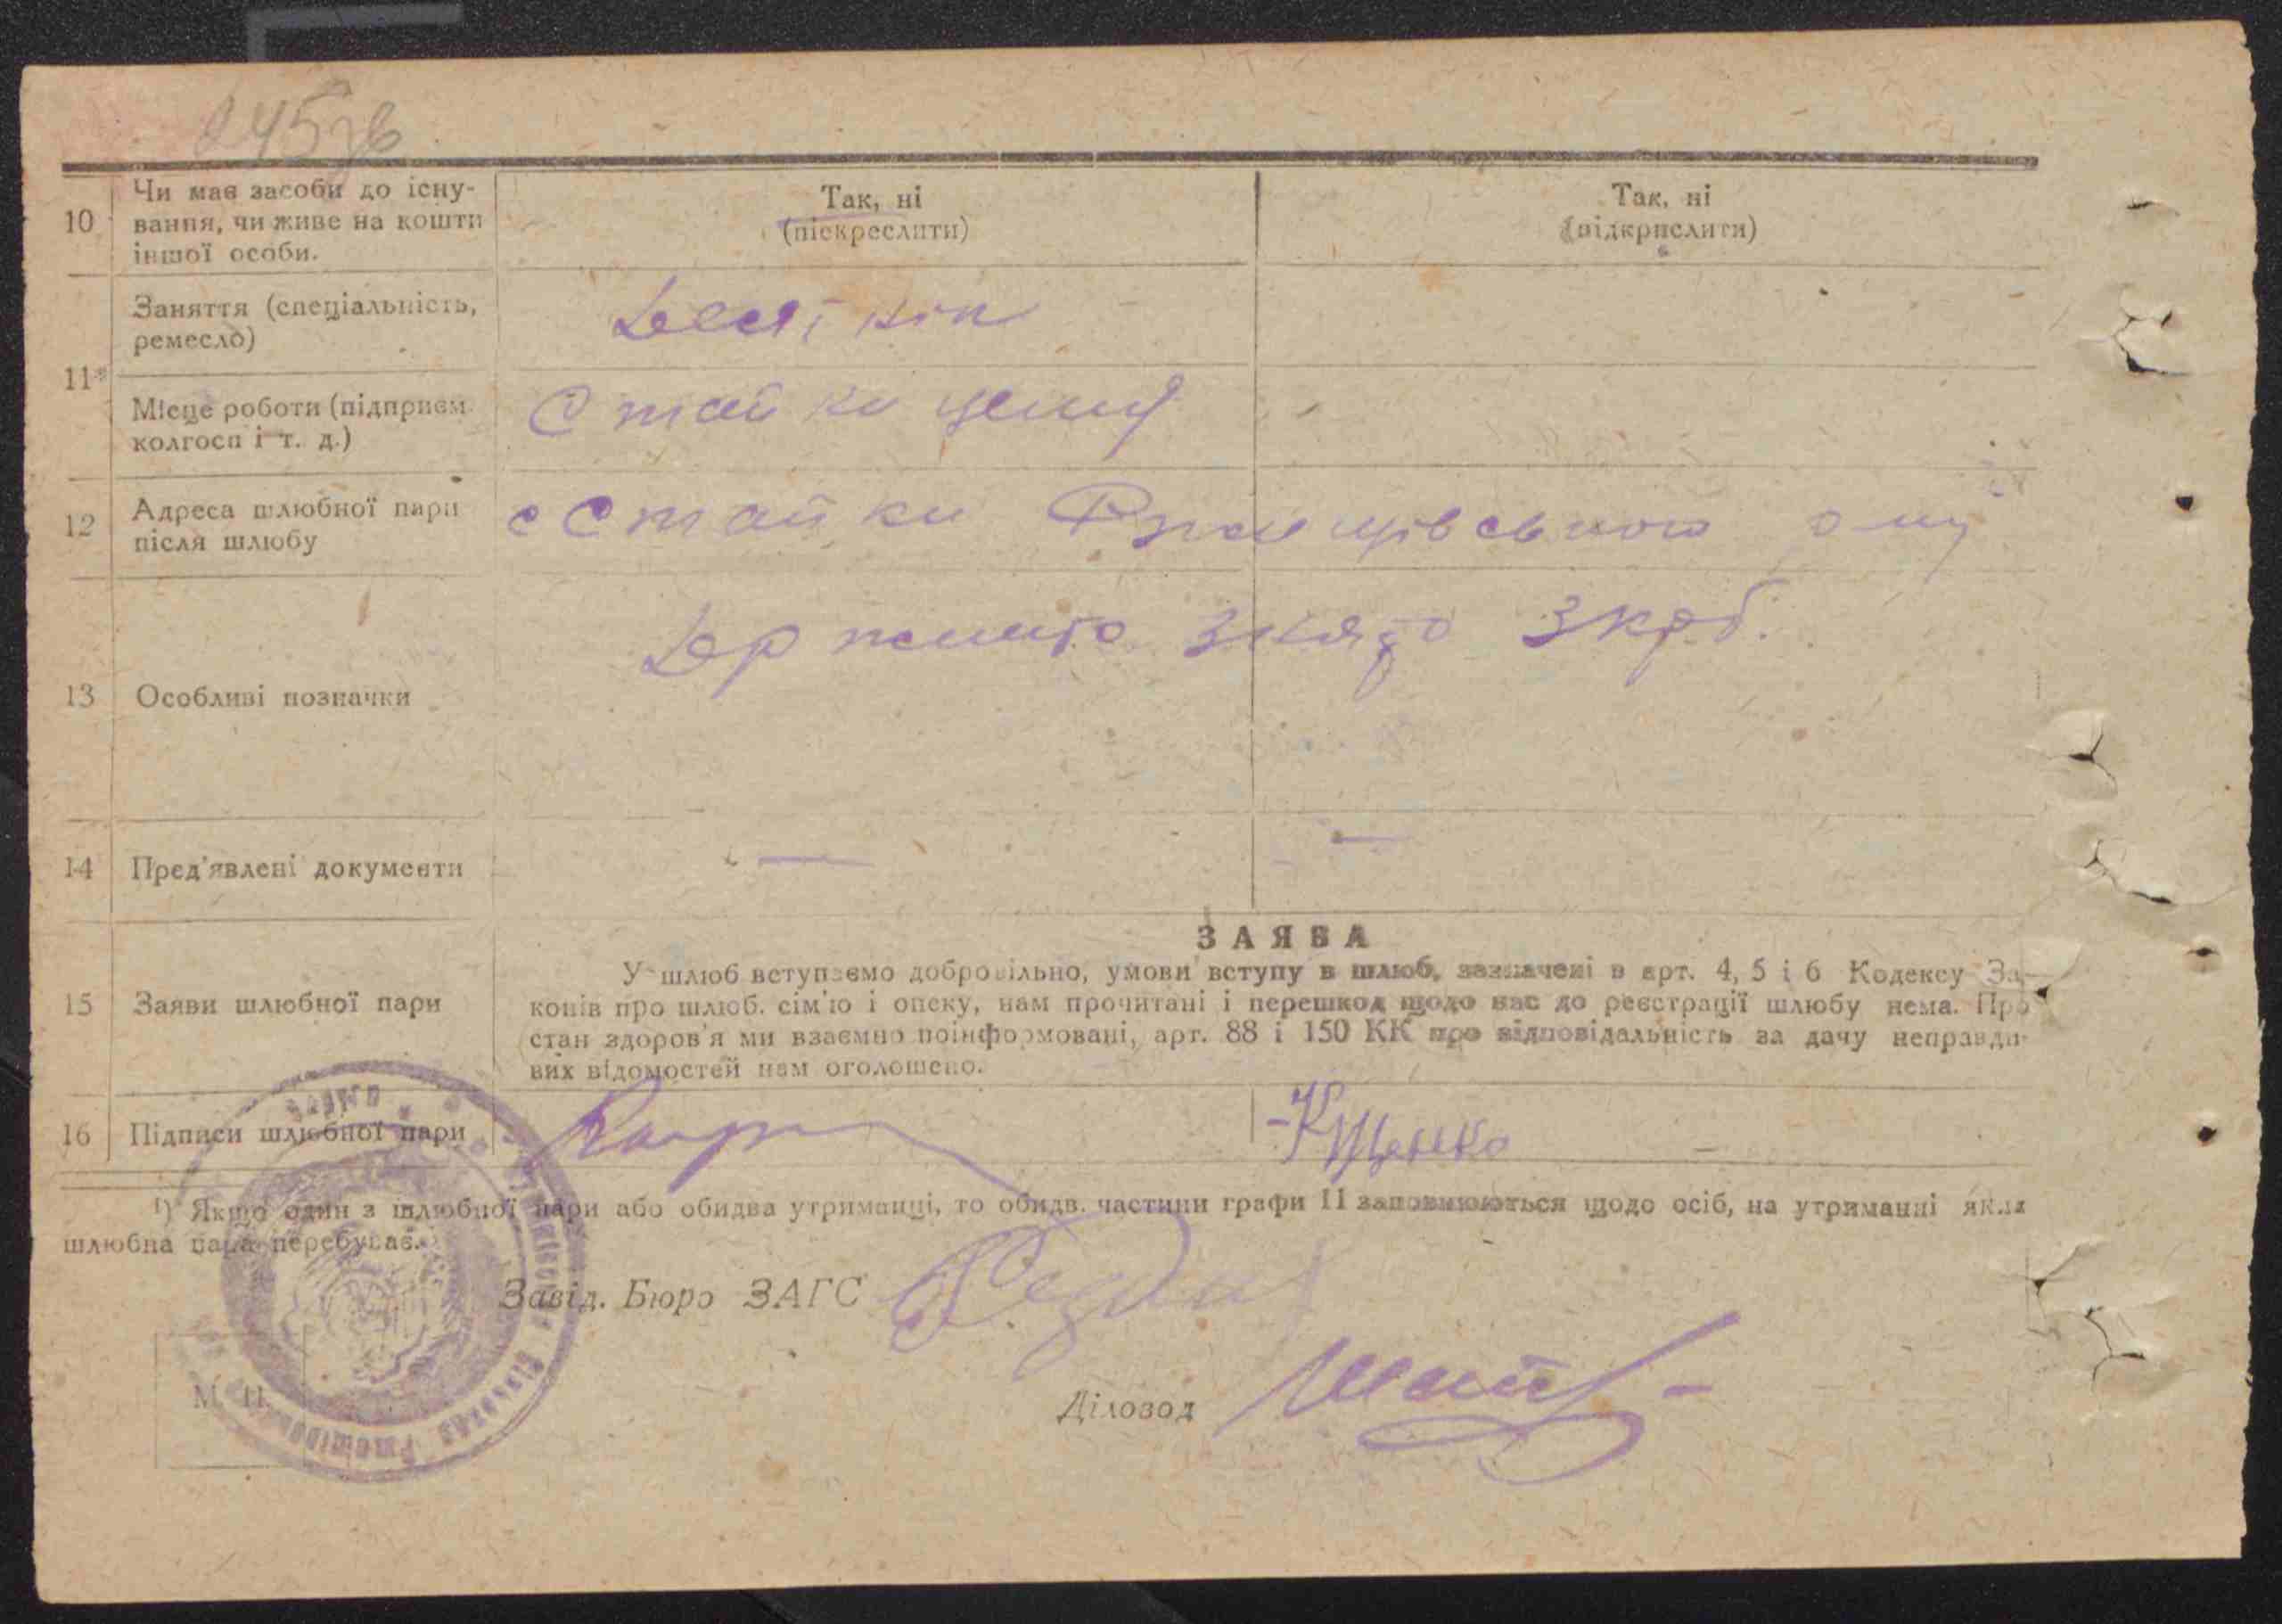 245зв
10 Чи має засоби до існу-
вання, чи живе на кошти
іншої особи.
Так, ні
(піскреслити)
Так, ні
(підкрислити)
11*
Заняття (спеціальність,
ремесло)
Місце роботи (підприєм.
колгосп і т. д.)
Стайки
12 Адреса шлюбної пари
після шлюбу
с Стайки Ржищівського р-ну
13 Особливі позначки
Держмито знято 3 крб.
14 Пред'явлені документи
— —
ЗАЯВА
15 Заяви шлюбної пари
У шлюб вступаємо добровільно, умови вступу в шлюб, зазначені в арт. 4, 5 і 6 Кодексу За-
конів про шлюб. сім'ю і опеку, нам прочитані і перешкод щодо нас до реєстрації шлюбу нема. Про
стан здоров'я ми взаємно поінформовані, арт. 88 і 150 КК про відповідальність за дачу неправди-
вих відомостей нам оголошено.
16 Підписи шлюбної пари
Кщенко
¹) Якщо один з шлюбної пари або обидва утриманці, то обидв. частини графи 11 заповнюються щодо осіб, на утриманні яких
шлюбна пара перебуває.
Завід. Бюро ЗАГС
Діловод
М. П.